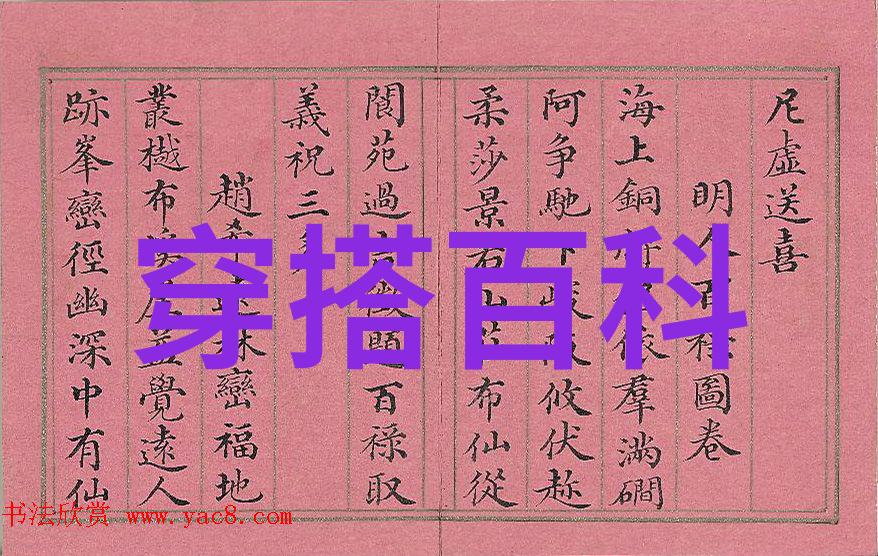 虛送喜
明人百祿圖卷
海上銅依羣滿磵
阿爭馳下岐攸伏
柔莎景石山布仙從
閬苑過徵題百祿取
義祝三多
趙希遠林巒福地
叢樾布蓋覺遠人
跡峯巒徑幽深中有仙
穿搭百科
书法欣赏 www.yac8.com